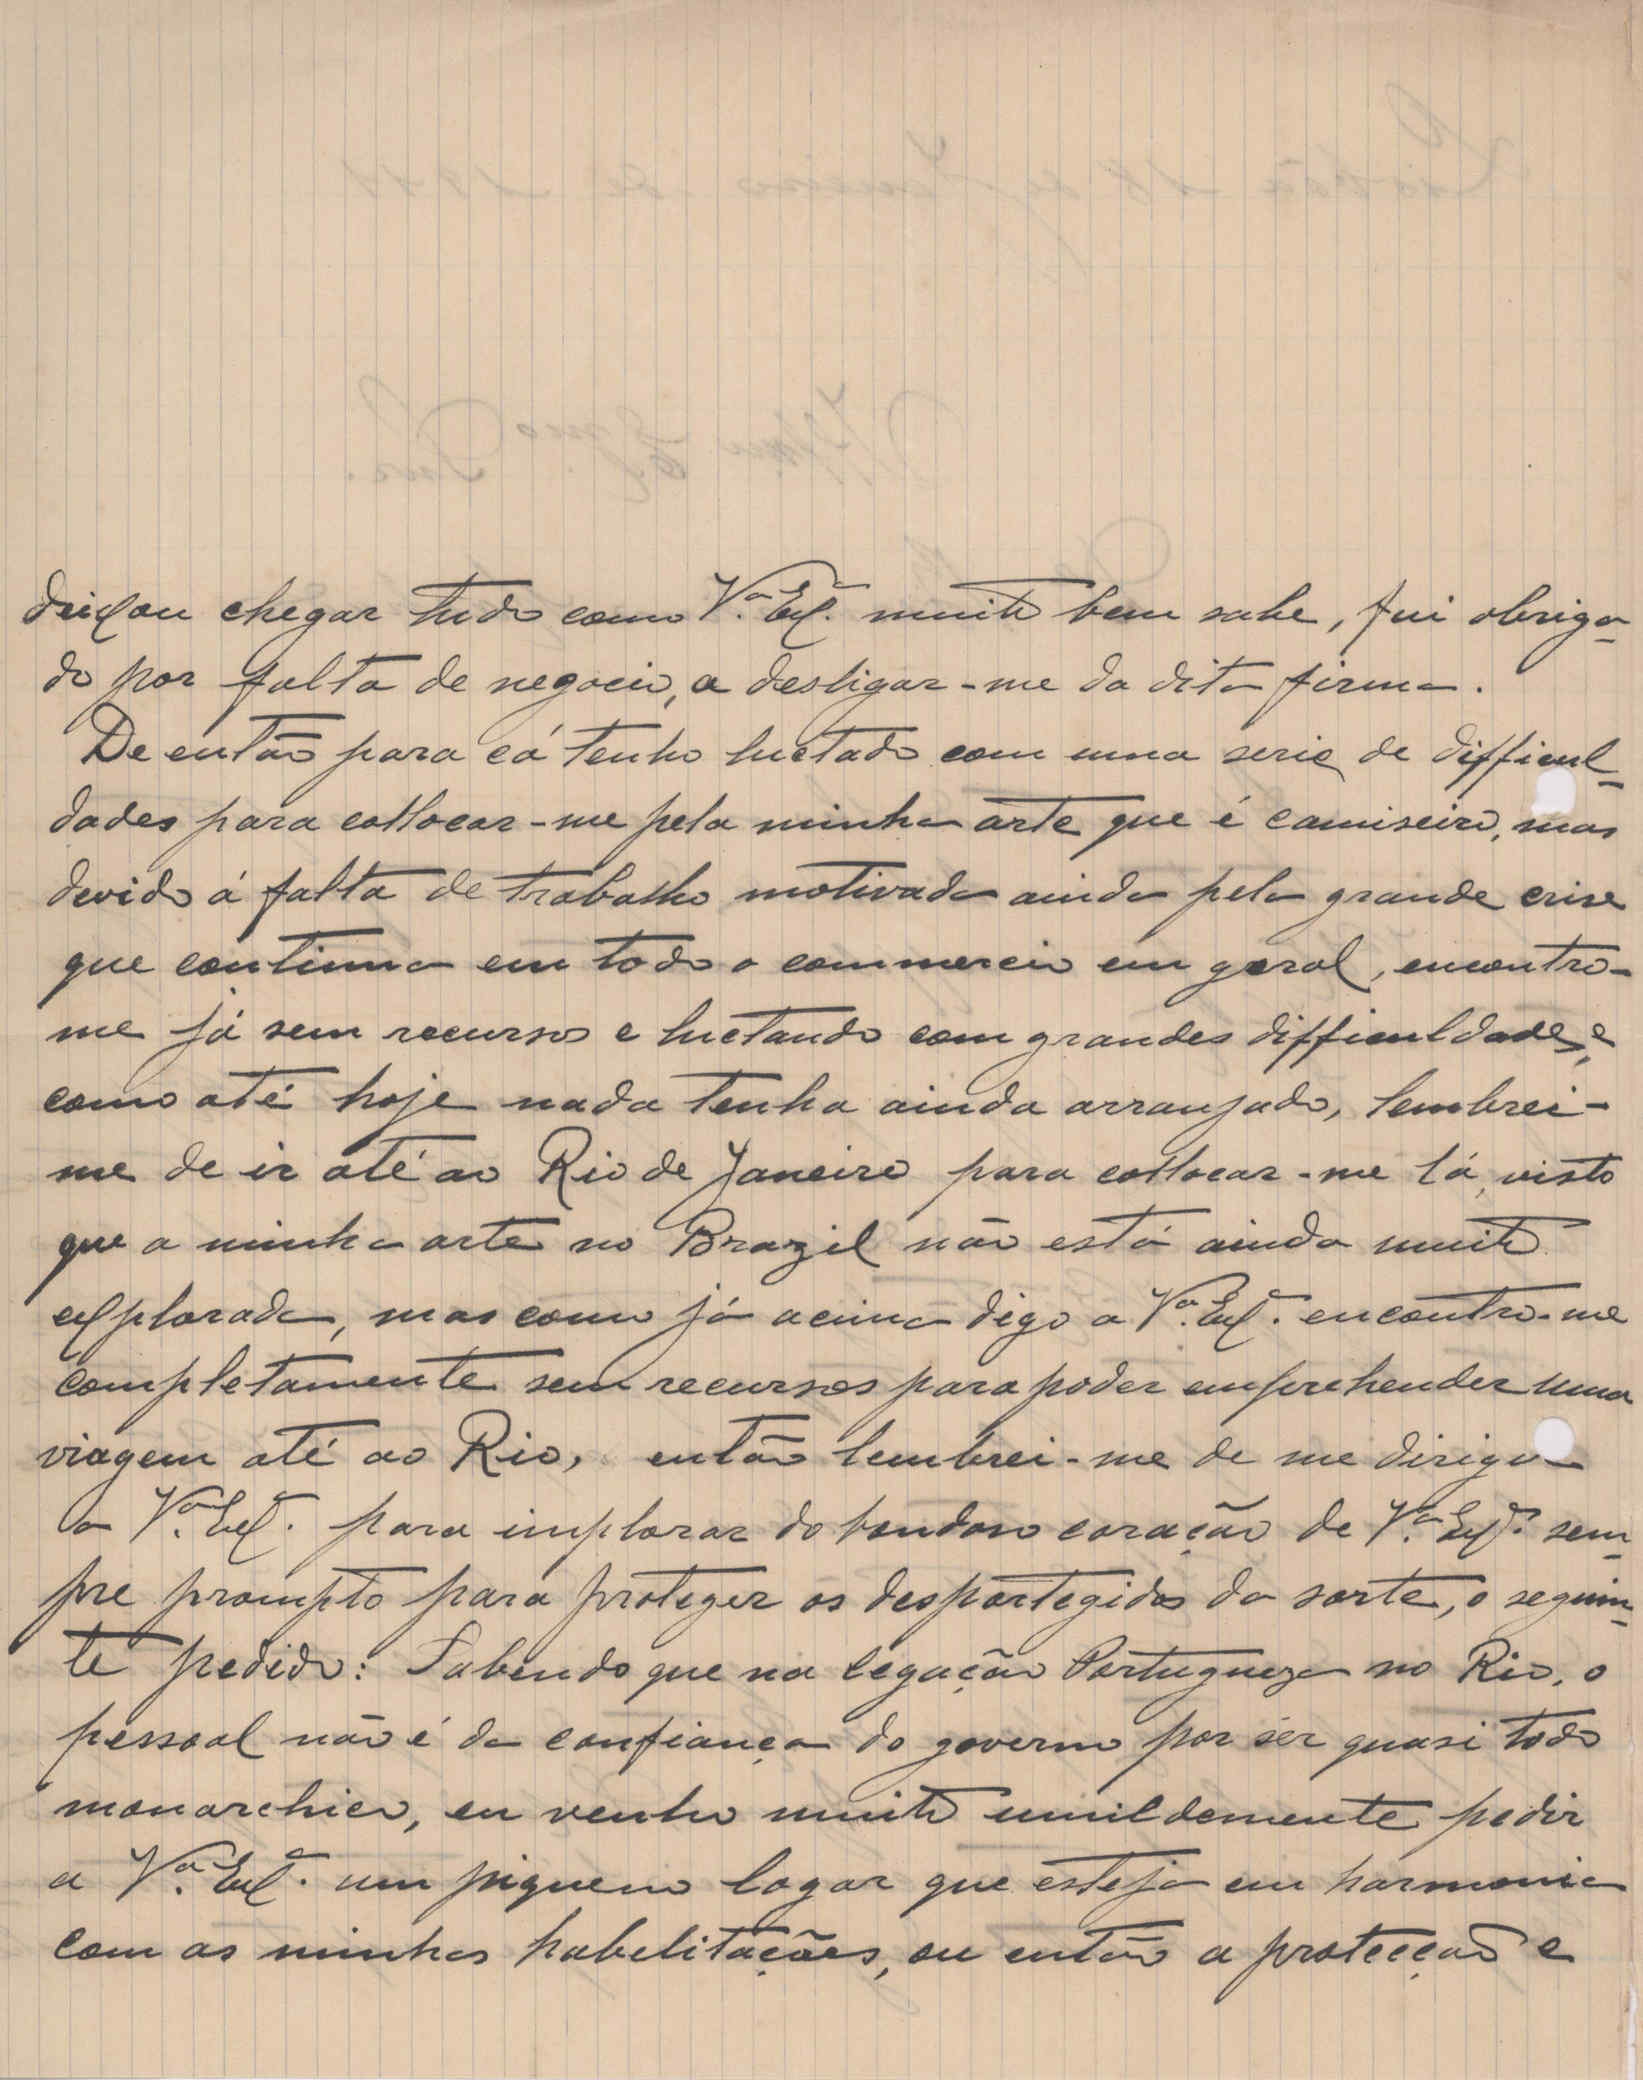 deixou chegar tudo como V.ª Ex.ª muito bem sabe, fui obriga-
do por falta de negocio, a desligar-me da dita firma.
De então para cá tenho luctado com uma serie de difficul-
dades para collocar-me pela minha arte que é camiseiro, mas
devido á falta de trabalho motivada ainda pela grande crise
que continua em todo o commercio em geral, encontro-
me já sem recursos e luctando com grandes difficuldades, e
como até hoje nada tenha ainda arranjado, lembrei-
me de ir até ao Rio de Janeiro para collocar-me lá, visto
que a minha arte no Brazil não está ainda muito
explorada, mas como já acima digo a V.ª Ex.ª encontro-me
completamente sem recursos para poder emprehender uma
viagem até ao Rio, então lembrei-me de me dirigir
a V.ª Ex.ª para implorar do bondoso coração de V.ª Ex.ª sem-
pre prompto para proteger os desportegidos da sorte, o seguin-
te pedido: Sabendo que na legação Portugueza no Rio, o
pessoal não é da confiança do governo por ser quasi todo
monarchico, eu venho muito umildemente pedir
a V.ª Ex.ª um piqueno logar que esteja em harmonia
com as minhas habelitações, ou então a protecção e